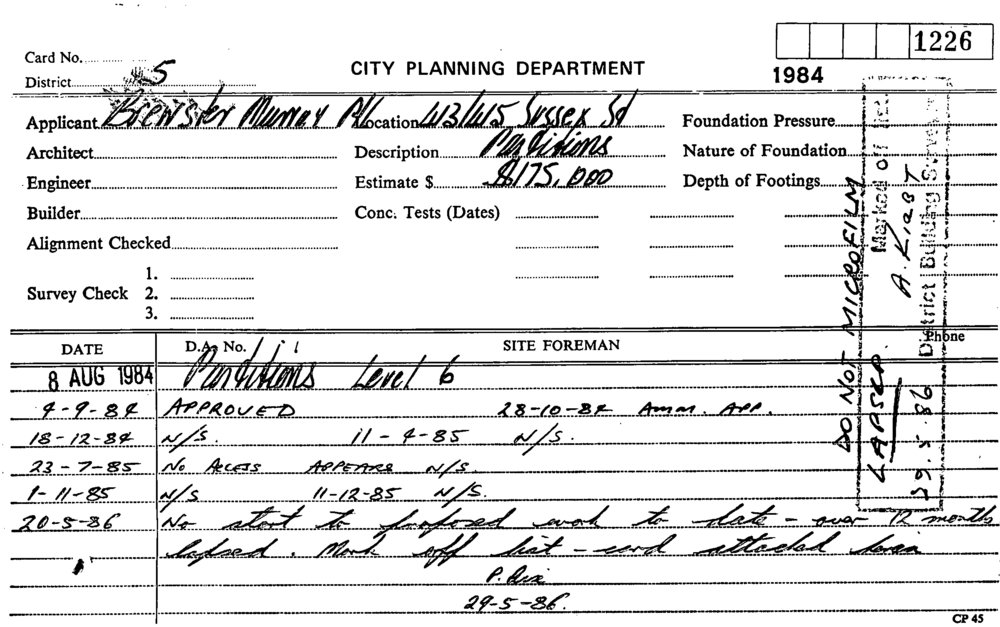 1226
Card No.
CITY PLANNING DEPARTMENT
1984
District 5
Applicant Brewster Murray P/L Location 413/415 Sussex St Foundation Pressure
Architect Description Partitions Nature of Foundation
Engineer Estimate $ $175,000 Depth of Footings
Builder Conc. Tests (Dates)
Alignment Checked
1.
Survey Check 2.
3.
DATE D.A. No. SITE FOREMAN Phone
8 AUG 1984 Partitions Level 6
4-9-84 APPROVED 28-10-84 Amm. APP.
18-12-84 N/S. 11-4-85 N/S.
23-7-85 No ACCESS APPEARS N/S.
1-11-85 N/S 11-12-85 N/S.
20-5-86 No start to proposed work to date - over 12 months
lapsed. Mark off list - card attached
P.
29-5-86.
CP 45
DO NOT MICROFILM
LAPSED
Marked off
A.
District Building Surveyor
29.5.86